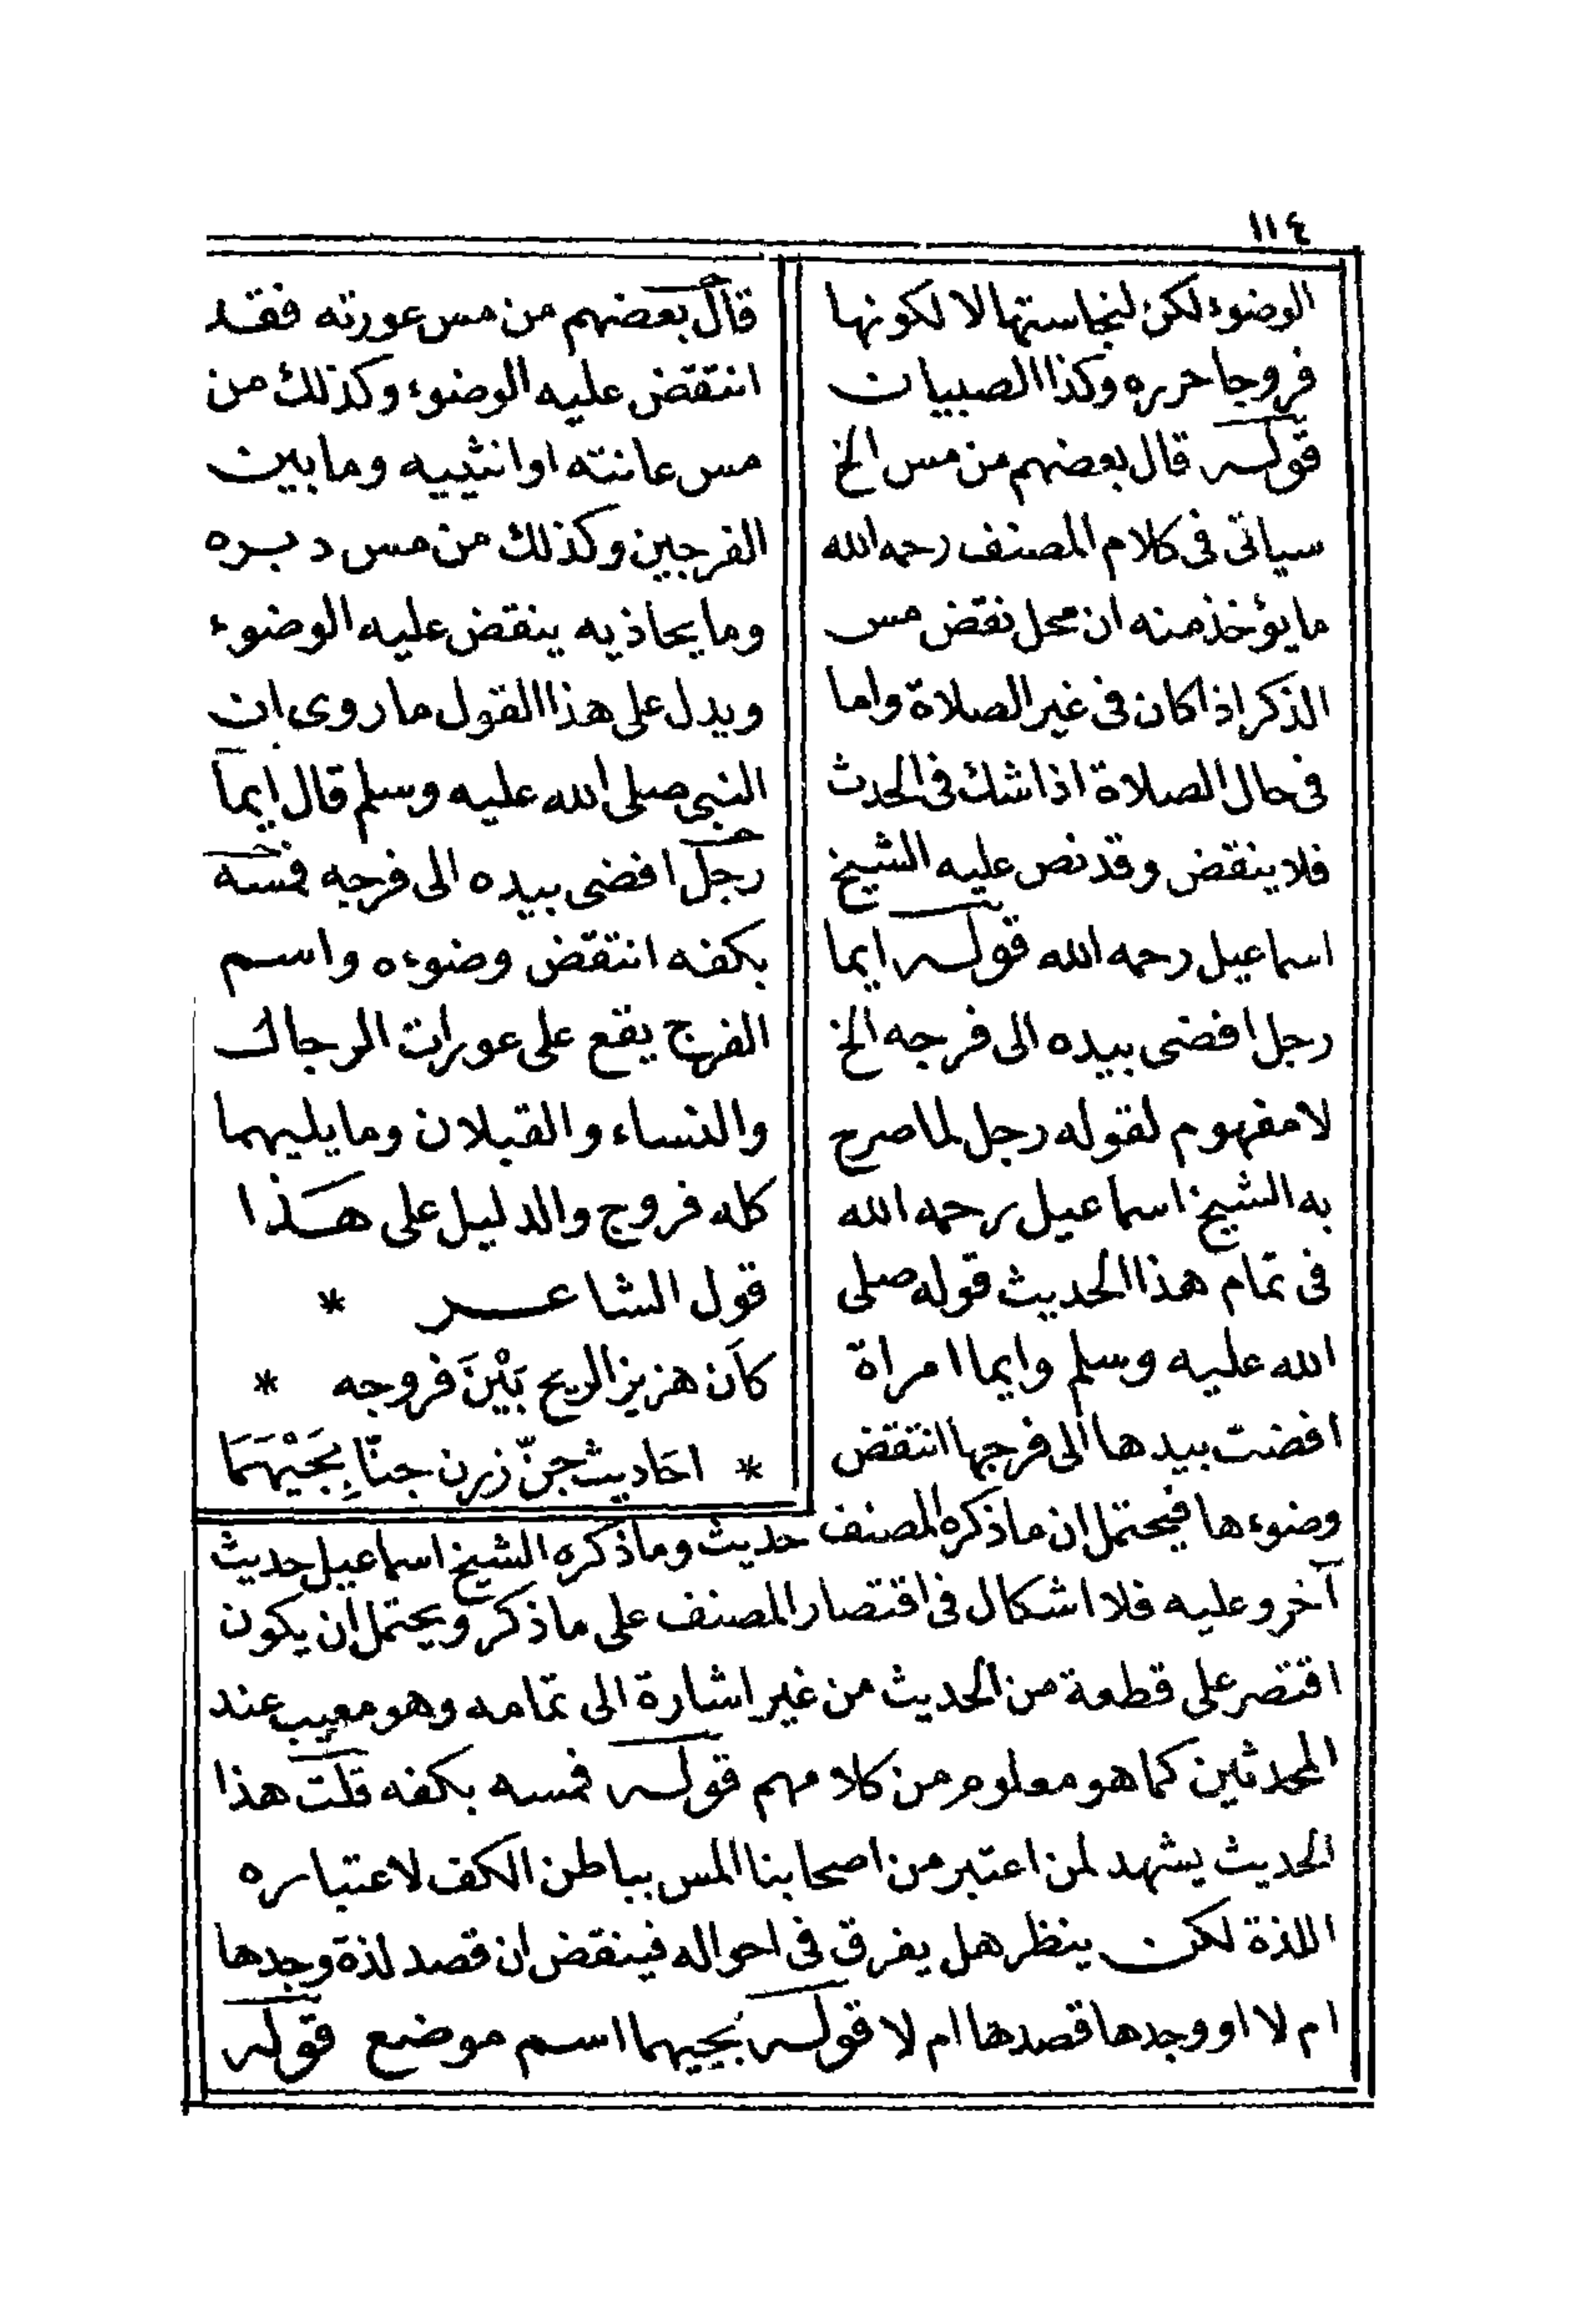 ١١٤
الوضوء لكن لنجاستها لا لكونها
فروجا حرره وكذا الصبيان
قوله قال بعضهم من مس الخ
سياتى فى كلام المصنف رحمه الله
ما يؤخذ منه ان محل نقض مس
الذكر اذا كان فى غير الصلاة واما
فى حال الصلاة اذا شك فى الحدث
فلا ينقض وقد نص عليه الشيخ
اسماعيل رحمه الله قوله ايما
رجل افضى بيده الى فرجه الخ
لا مفهوم لقوله رجل لما صرح
به الشيخ اسماعيل رحمه الله
فى تمام هذا الحديث قوله صلى
الله عليه وسلم وايما امراة
افضت بيدها الى فرجها انتقض
قال بعضهم من مس عورته فقد
انتقض عليه الوضوء وكذلك من
مس عانته او انثييه وما بين
الفرجين وكذلك من مس دبره
وما يحاذيه ينقض عليه الوضوء
ويدل على هذا القول ما روى ان
النبى صلى الله عليه وسلم قال ايما
رجل افضى بيده الى فرجه فمسه
بكفه انتقض وضوءه واسم
الفرج يقع على عورات الرجال
والنساء والقبلان وما يليهما
كله فروج والدليل على هذا
قول الشاعر *
كأن هزيز الريح بَيْنَ فروجه *
* احَاديث جنّ زرن جنّا بِجَيْهَمَا
وضوءها فيحتمل ان ما ذكره المصنف حديث وما ذكره الشيخ اسماعيل حديث
آخر وعليه فلا اشكال فى اقتصار المصنف على ما ذكر ويحتمل ان يكون
اقتصر على قطعة من الحديث من غير اشارة الى تمامه وهو معيب عند
المحدثين كما هو معلوم من كلامهم قوله فمسه بكفه قلت هذا
الحديث يشهد لمن اعتبر من اصحابنا المس بباطن الكف لاعتباره
اللذة لكن ينظر هل يفرق فى احواله فينقض ان قصد لذة وجدها
ام لا او وجدها قصدها ام لا قوله بجيهما اسم موضع قوله